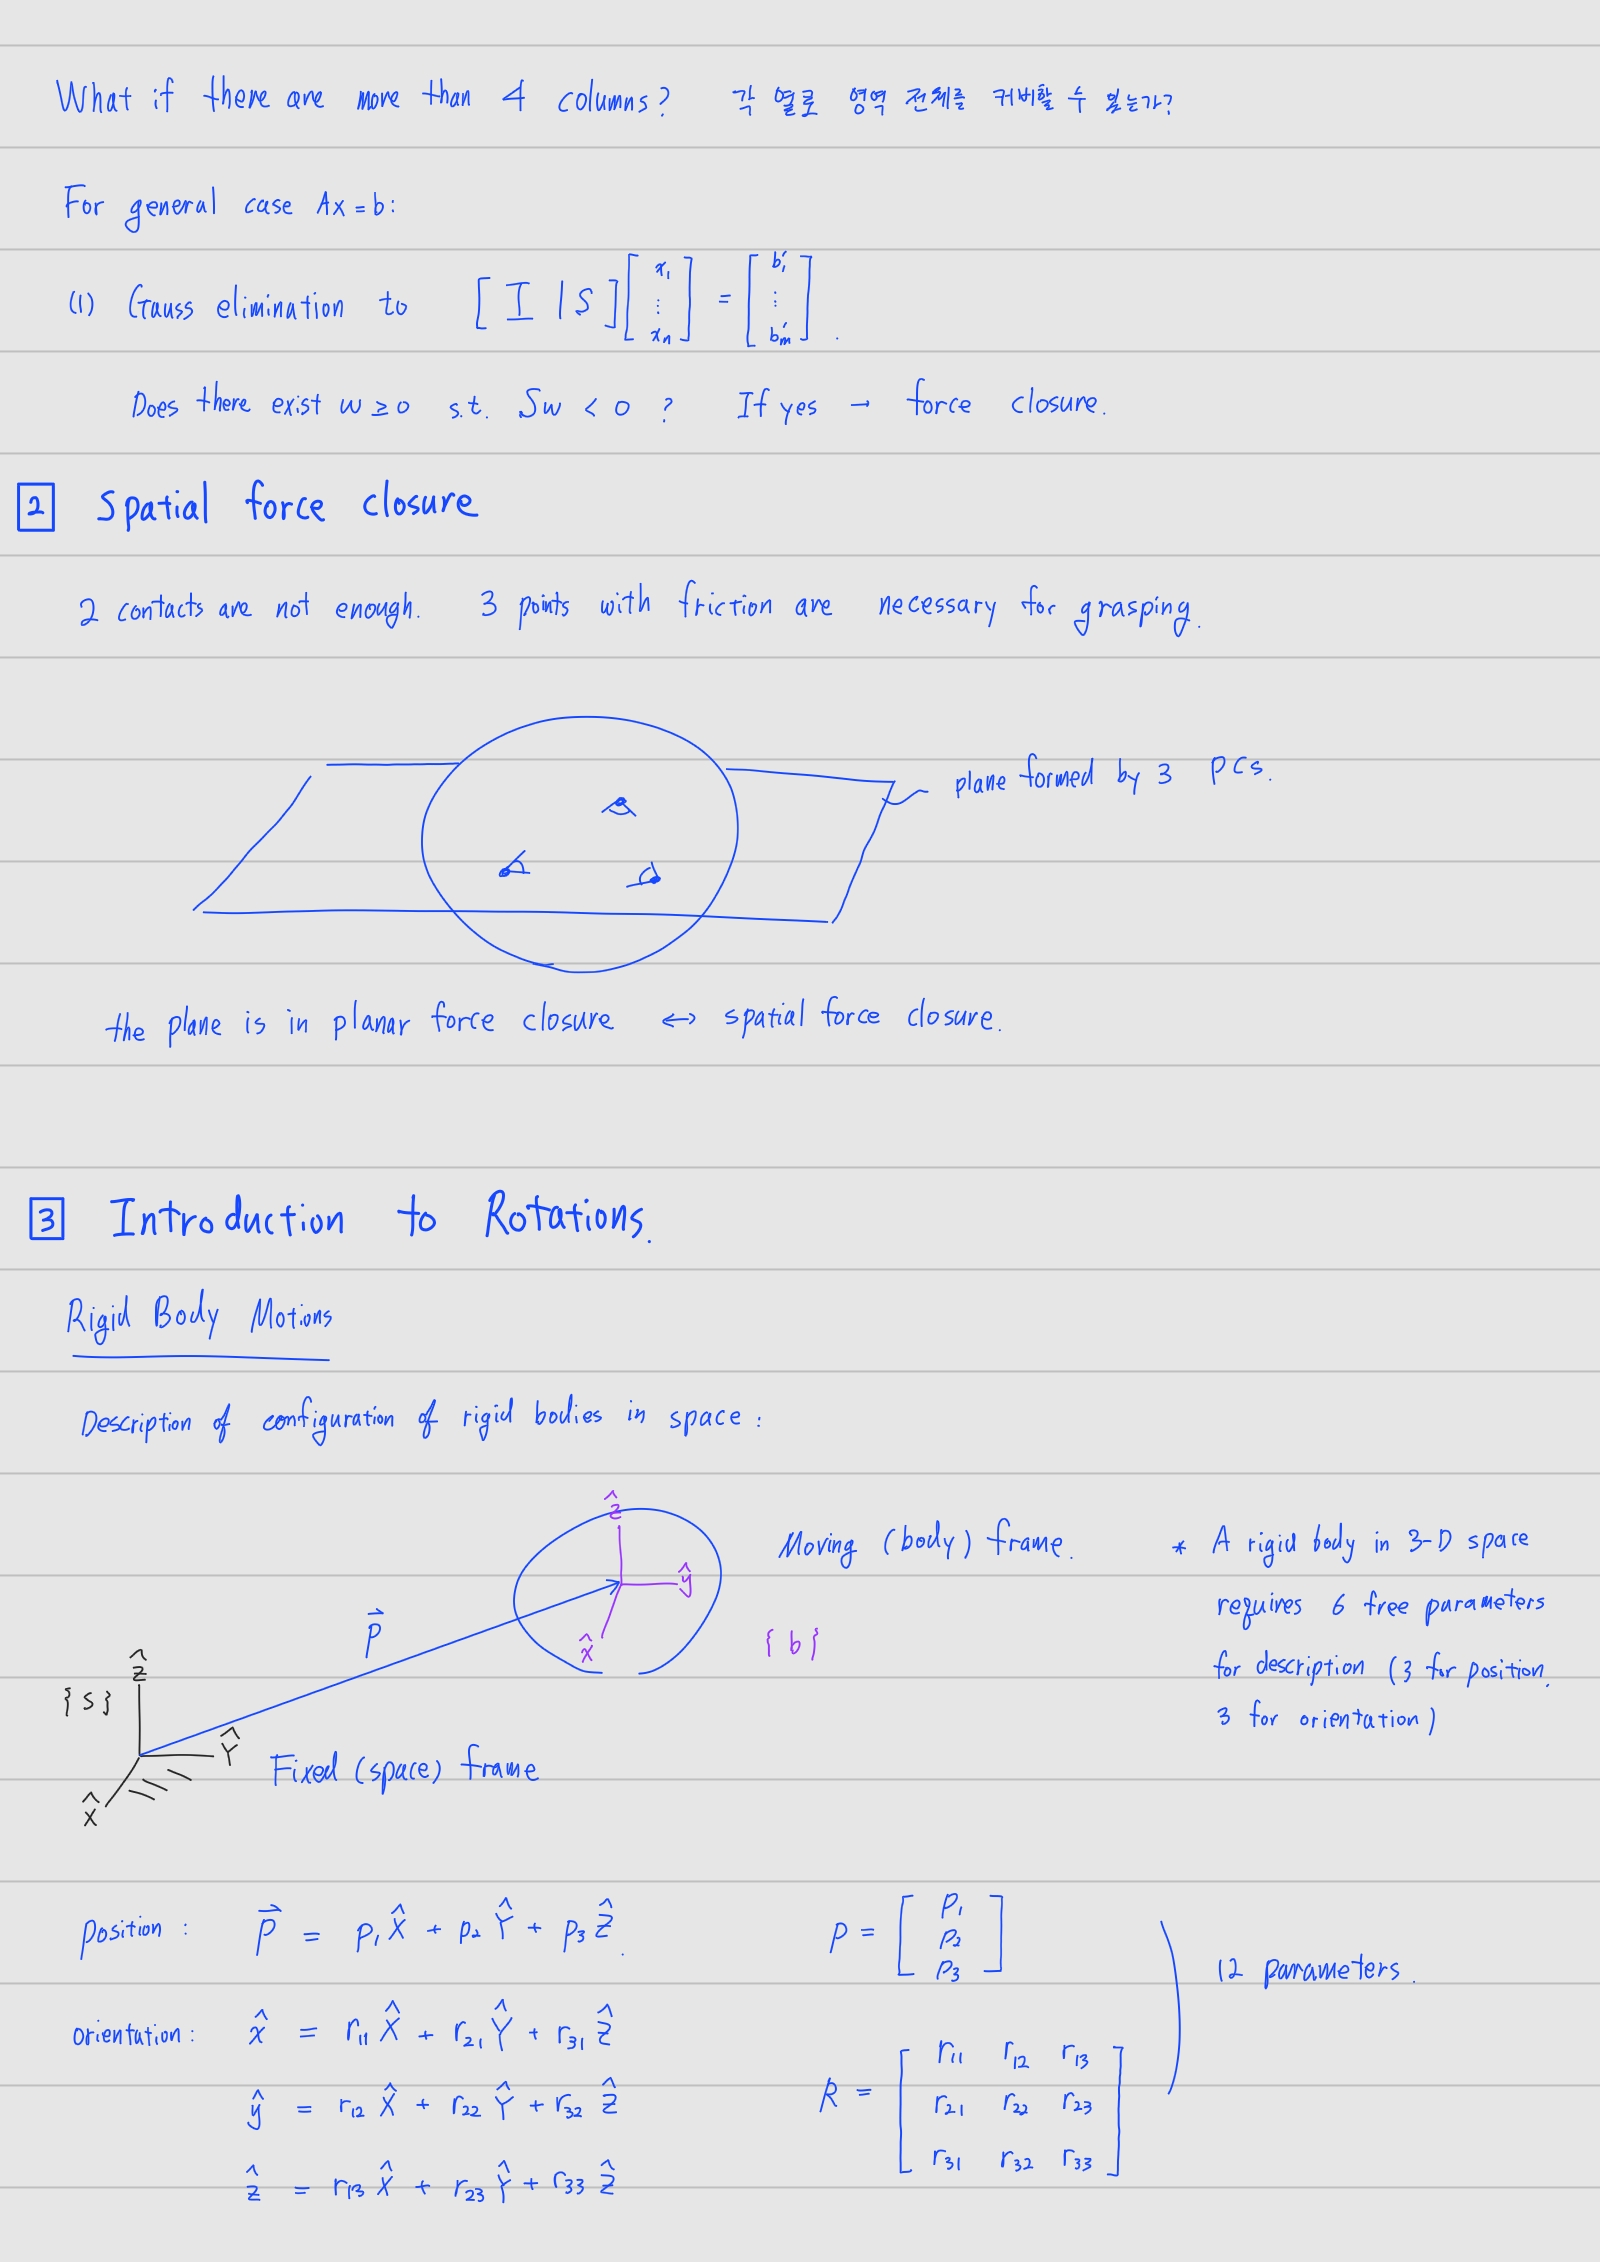 What if there are more than 4 columns? 각 열로 영역 전체를 커버할 수 있는가?
For general case Ax = b:
(1) Gauss elimination to [ I | S ] [ x₁ ⋮ xₙ ] = [ b₁' ⋮ bₘ' ] .
Does there exist w ≥ 0 s.t. Sw < 0 ? If yes → force closure.
2 Spatial force closure
2 contacts are not enough. 3 points with friction are necessary for grasping.
plane formed by 3 PCs.
the plane is in planar force closure ↔ spatial force closure.
3 Introduction to Rotations.
Rigid Body Motions
Description of configuration of rigid bodies in space :
ẑ
ŷ
x̂
p⃗
Moving (body) frame.
{ b }
* A rigid body in 3-D space
requires 6 free parameters
for description (3 for position,
3 for orientation)
Ẑ
{ s }
Ŷ
X̂
Fixed (space) frame
position : p⃗ = p₁ X̂ + p₂ Ŷ + p₃ Ẑ. p = [ p₁ p₂ p₃ ]
12 parameters.
orientation : x̂ = r₁₁ X̂ + r₂₁ Ŷ + r₃₁ Ẑ
ŷ = r₁₂ X̂ + r₂₂ Ŷ + r₃₂ Ẑ
ẑ = r₁₃ X̂ + r₂₃ Ŷ + r₃₃ Ẑ
R = [ r₁₁ r₁₂ r₁₃
r₂₁ r₂₂ r₂₃
r₃₁ r₃₂ r₃₃ ]